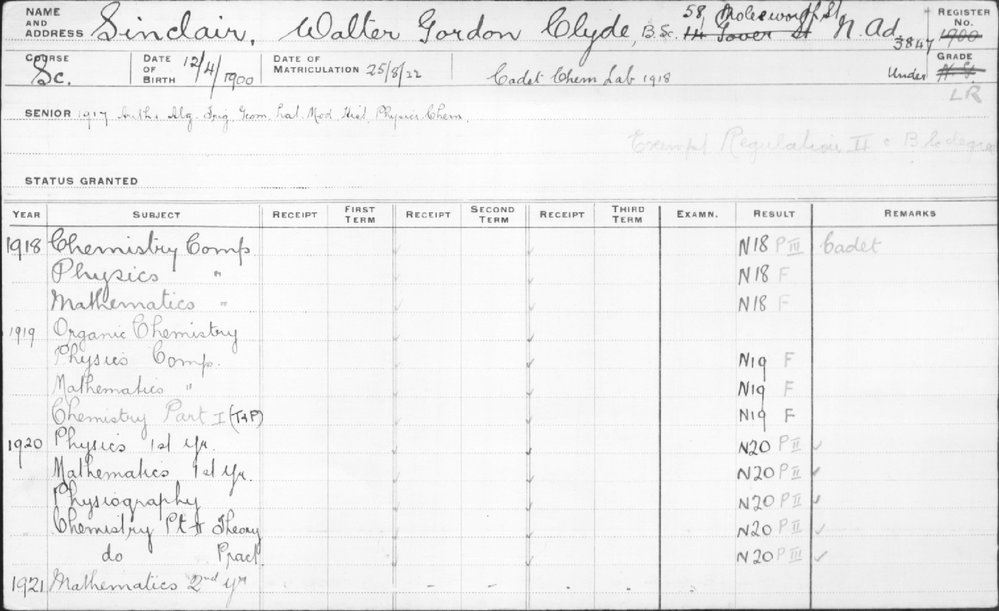 NAME AND ADDRESS Sinclair, Walter Gordon Clyde, B.Sc. 58, Molesworth St N. Ad. 3847 REGISTER No. 1900
14 Gover St
COURSE Sc. DATE OF BIRTH 12/4/1900 DATE OF MATRICULATION 25/8/22 Cadet Chem Lab 1918 Under GRADE
LR
SENIOR 1917 Arith. Alg. Trig. Geom. Lat. Mod. Hist. Physics. Chem.
Exempt Regulation II
STATUS GRANTED
YEAR SUBJECT RECEIPT FIRST TERM RECEIPT SECOND TERM RECEIPT THIRD TERM EXAMN. RESULT REMARKS
1918 Chemistry Comp. N18 P III Cadet
Physics " N18 F
Mathematics " N18 F
1919 Organic Chemistry
Physics Comp. N19 F
Mathematics " N19 F
Chemistry Part I (T&P) N19 F
1920 Physics 1st Yr. N20 P II ✓
Mathematics 1st Yr. N20 P II ✓
Physiography N20 P II ✓
Chemistry Pt II Theory N20 P II ✓
do Pract. N20 P III ✓
1921 Mathematics 2nd Yr - - -